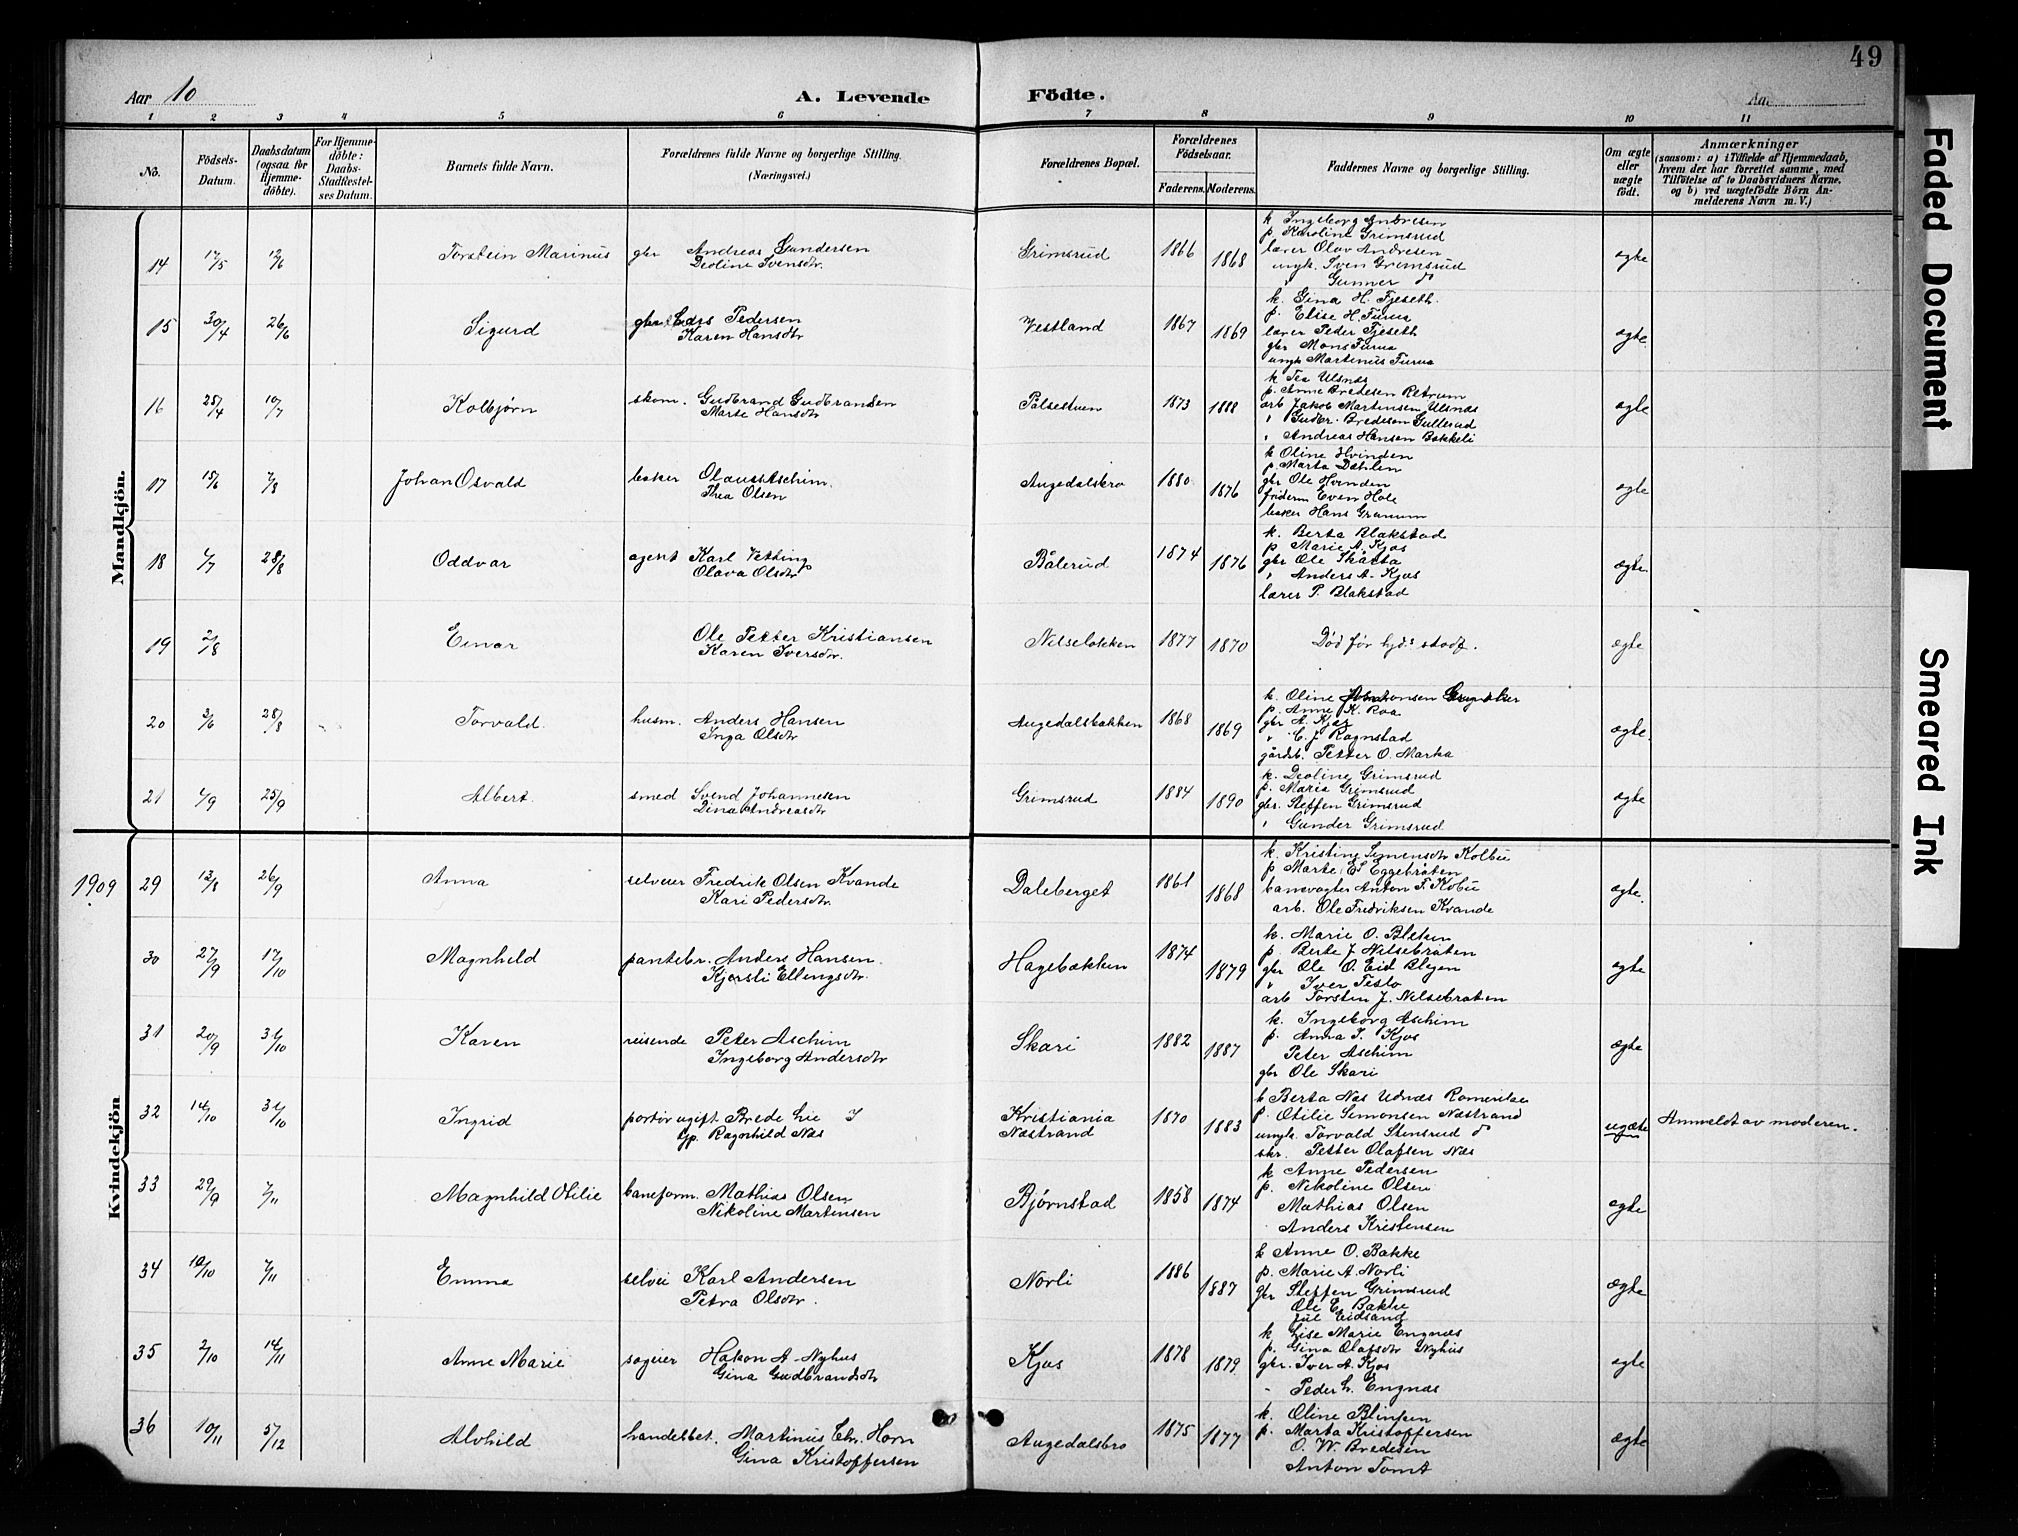 49
Aar 10
A. Levende Födte.
Aar
1 2 3 4 5 6 7 8 9 10 11
No.
Födsels-Datum.
Daabsdatum (ogsaa for Hjemme-döbte).
For Hjemme-döbte: Daabs-Stadfæstel-ses Datum.
Barnets fulde Navn.
Forældrenes fulde Navne og borgerlige Stilling.
(Næringsvei.)
Forældrenes Bopæl.
Forældrenes Födselsaar.
Faderens. Moderens.
Faddernes Navne og borgerlige Stilling.
Om ægte eller uægte födt.
Anmærkninger
(saasom: a) i Tilfælde af Hjemmedaab, hvem der har forrettet samme, med Tilföielse af to Daabsvidners Navne, og b) ved uægtefödte Börn Anmelderens Navn m. V.)
Mandkjön.
14 17/5 12/6 Torstein Marinus gbr Andreas Gundersen
Deoline Svensdtr.
Grimsrud 1866 1868
k Ingeborg Andresen
p. Karoline Grimsrud
lærer Olav Andresen
ungk. Sven Grimsrud
Gunner do
ægte
15 30/4 26/6 Sigurd gbr Lars Pedersen
Karen Hansdtr
Vestland 1867 1869
k. Gina H. Fjeseth.
p. Elise H. Furua
lærer Peder Fjeseth
gbr Mons Furua
ungk Martinus Furua
ægte.
16 25/4 10/7 Kolbjørn skom. Gudbrand Gudbrandsen
Marte Hansdtr
Pålsestuen 1873 1888
k Tea Ulsnæs
p. Anne Bredesen Retrum
arb Jakob Martensen Ulsnæs
" Gudbr. Bredesen Gullerud
" Andreas Hansen Bakkeli
ægte
17 15/6 7/8 Johan Osvald baker Olaus Aschim.
Thea Olsen
Augedalsbro 1880 1876
k Oline Hvinden
p. Marta Dæhlen
gbr Ole Hvinden
Even Hole
baker Hans Granum
ægte
18 4/7 28/8 Oddvar agent Karl Vetting
Olava Olsdtr
Bålerud 1874 1876
k. Berta Blakstad
p Marie A. Kjos
gbr Ole Skåtta
" Anders A. Kjos
lærer P. Blakstad
ægte.
19 2/8 Einar Ole Petter Kristiansen
Karen Iversdtr.
Nilseløkken 1877 1870
Død før
ægte
20 3/6 28/8 Torvald. husm. Anders Hansen
Inga Olsdtr
Augedalsbakken 1868 1869
k. Oline
p. Anne K. Roa
gbr A. Kjos
" C. J. Ragnstad
gårdb. Petter O. Marka
ægte.
21 4/9 25/9 Albert. smed Svend Johannesen
Dina Andreasdtr
Grimsrud 1884 1890
k. Deoline Grimsrud
p. Maria Grimsrud
gbr. Steffen Grimsrud
" Gunder Grimsrud
ægte
1909
Kvindekjön
29 12/8 26/9 Anna selveier Fredrik Olsen Kvande
Kari Pedersdtr.
Daleberget 1861 1868
k. Kristine Simensdtr Kolbu
p Marte E. Eggebråten
banevogter Anton F. Kobu
arb. Ole Fredriksen Kvande
ægte.
30 27/9 17/10 Magnhild pantebr. Anders Hansen.
Kjersti Ellingsdtr.
Hagebakken 1874 1879
k. Marie O. Bleken
p Berte J. Nilsebråten
gbr Ole O. Eid Blegen
" Iver Teslo
arb Torsten J. Nilsebråten
ægte
31 20/9 31/10 Karen reisende Peter Aschim
Ingeborg Andersdtr
Skari 1882 1887
k. Ingeborg Aschim
p. Anna I. Kjos
Peter Aschim
gbr Ole Skari
ægte
32 14/10 31/10 Ingrid portør ugift Brede Lie
Ragnhild Næs
Kristiania
Næstrand
1870 1883
k Berta Næs Udnæs Romerike
p. Otilie Simonsen Næstrand
ungk. Torvald Stensrud do
skr. Petter Olafsen Næs
uægte Anmeldt av moderen.
33 29/9 7/11 Magnhild Otilie baneform. Mathias Olsen
Nikoline Martensen
Bjørnstad 1858 1874
k Anne Pedersen
p. Nikoline Olsen
Mathias Olsen
Anders Kristensen
ægte
34 10/10 7/11 Emma selvei Karl Andersen
Petra Olsdtr.
Norli 1886 1887
k Anne O. Bakke
p. Marie A. Norli
gbr Steffen Grimsrud
Ole E. Bakke
Jul Eidsand
ægte
35 2/10 14/11 Anne Marie sageier Håkon A. Nyhus
Gina Gudbrandsdtr
Kjos 1878 1879
k Lise Marie Engnæs
p. Gina Olafsdtr Nyhus
gbr. Iver A. Kjos
" Peder L. Engnæs
ægte
36 10/11 5/12 Alvhild handelsbet. Martinus Chr. Horn
Gina Kristoffersen
Augedalsbro 1875 1877
k. Oline Blinken
p. Marta Kristoffersen
O. W. Bredesen
Anton Tomt
ægte
Faded Document
Smeared Ink